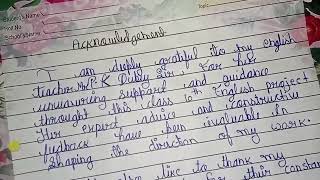 Topic
Acknowledgement
I am deeply grateful to my english
teacher Mr P.K Dubey Sir, For his
unwavering support and guidance
throught this class 10th English project
His expert advice and constructive
fedback have been invaluable in
shaping the direction of my work.
also like to thank my
for their constan